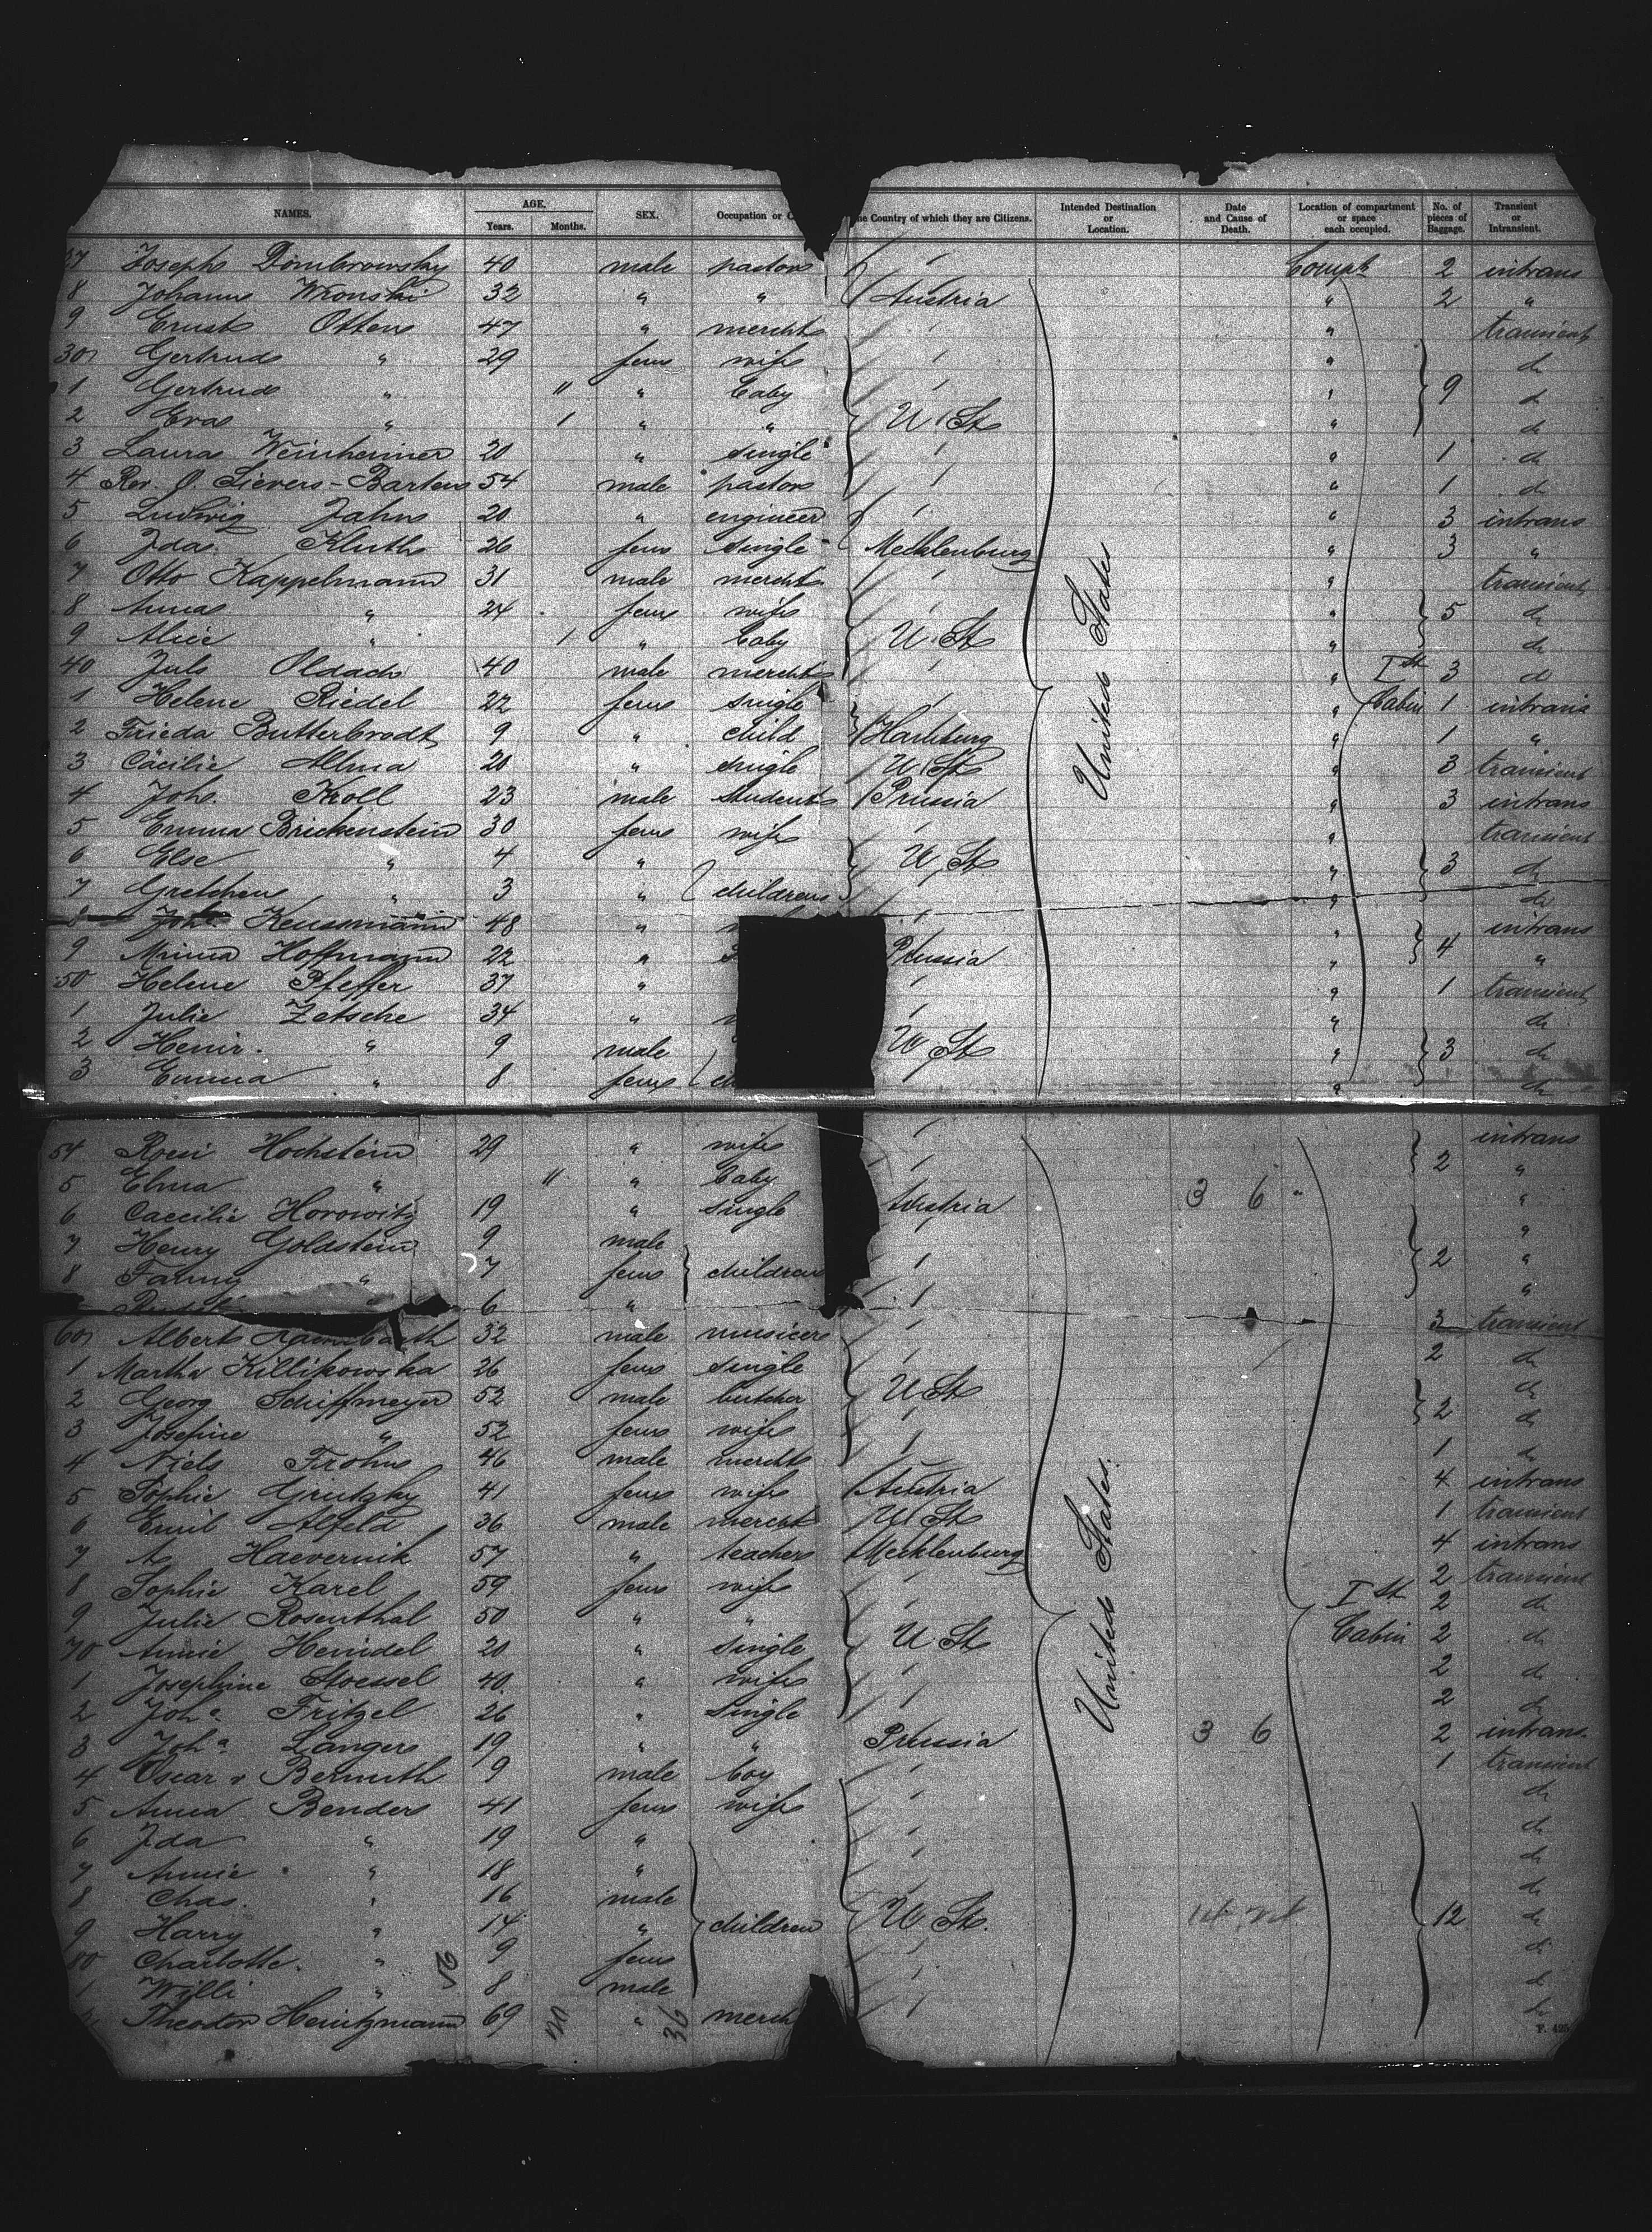 NAMES. AGE. Years. Months. SEX. Occupation or C the Country of which they are Citizens. Intended Destination or Location. Date and Cause of Death. Location of compartment or space each occupied. No. of pieces of Baggage. Transient or Intransient.
27 Joseph Dombrowsky 40 male pastor Compt 2 intrans
8 Johann Wronski 32 " " Austria " 2 "
9 Ernst Otten 47 " mercht " transient
30 Gertrud " 29 fem wife " do
1 Gertrud " 11 " baby " 9 do
2 Eva " 1 " " U St " do
3 Laura Weinheimer 20 " single " 1 do
4 Rev. J. Sievers-Bartens 54 male pastor " 1 do
5 Ludwig Jahn 20 " engineer " 3 intrans
6 Ida Kluth 26 fem single Mecklenburg " 3 "
7 Otto Kappelmann 31 male mercht " transient
8 Anna " 24 fem wife " 5 do
9 Alice " 1 " baby U. St " do
40 Juls Oldach 40 male mercht " Ist 3 do
1 Helene Riedel 22 fem single " Cabin 1 intrans
2 Frieda Butterbrodt 9 " child Hamburg " 1 "
3 Cäcilie Alma 20 " single U St " 3 transient
4 Joh. Kroll 23 male student Prussia " 3 intrans
5 Emma Brickenstein 30 fem wife " transient
6 Else " 4 " U St " 3 do
7 Gretchen " 3 " children " do
8 Joh. Keussmann 48 " " intrans
9 Minna Hoffmann 22 " Prussia " 4 "
50 Helene Pfeffer 37 " " 1 transient
1 Julie Zetsche 34 " " do
2 Heinr. " 9 male U St " 3 do
3 Emma " 8 fem ch " do
United States
54 Rosi Hochstein 29 " wife intrans
5 Elma " 11 " baby 2 "
6 Caecilie Horowitz 19 " single Austria 3 6 " "
7 Henry Goldstein 9 male "
8 Fanny " 7 fem children 2 "
" 6 " "
60 Albert 32 male musicer 3 transient
1 Martha Killikowska 26 fem single 2 do
2 Georg Schiffmeyer 52 male butcher U St do
3 Josefine " 52 fem wife 2 do
4 Niels Frohn 46 male mercht 1 do
5 Sophie Grutzky 41 fem wife Austria 4 intrans
6 Emil Alfeld 36 male mercht U St 1 transient
7 A. Haevernik 57 " teacher Mecklenburg 4 intrans
8 Sophie Karel 59 fem wife 2 transient
9 Julie Rosenthal 50 " " Ist 2 do
70 Annie Heindel 20 " single U St Cabin 2 do
1 Josephine Stoessel 40 " wife 2 do
2 Joha. Fritzel 26 " single 2 do
3 Joha. Langer 19 " " Prussia 3 6 2 intrans.
4 Oscar v Bermuth 9 male boy 1 transient
5 Anna Bender 41 fem wife do
6 Ida " 19 " do
7 Annie " 18 " do
8 Chas. " 16 male do
9 Harry " 14 " children U St. 12 do
80 Charlotte. " 9 fem do
1 Willi " 8 male do
Theodor Heintzmann 69 " merch do
United States.
36